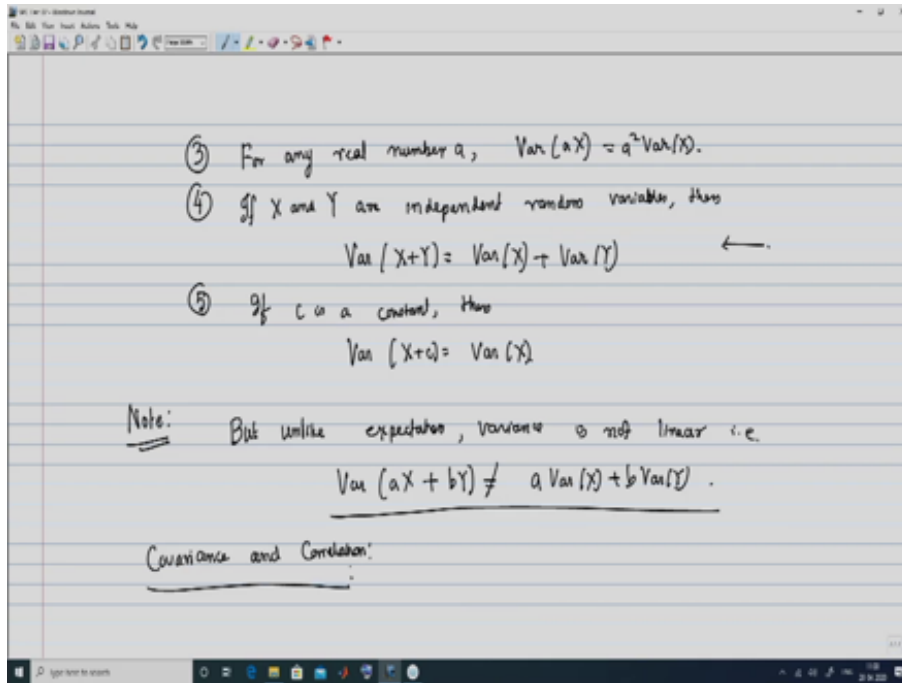 ③ For any real number a, Var (aX) = a²Var(X).
④ If X and Y are independent random variables, then
Var (X+Y) = Var(X) + Var(Y) ←
⑤ If c is a constant, then
Var (X+c) = Var (X)
Note: But unlike expectation, variance is not linear i.e
Var (aX + bY) ≠ a Var(X) + b Var(Y) .
Covariance and Correlation:
Type here to search